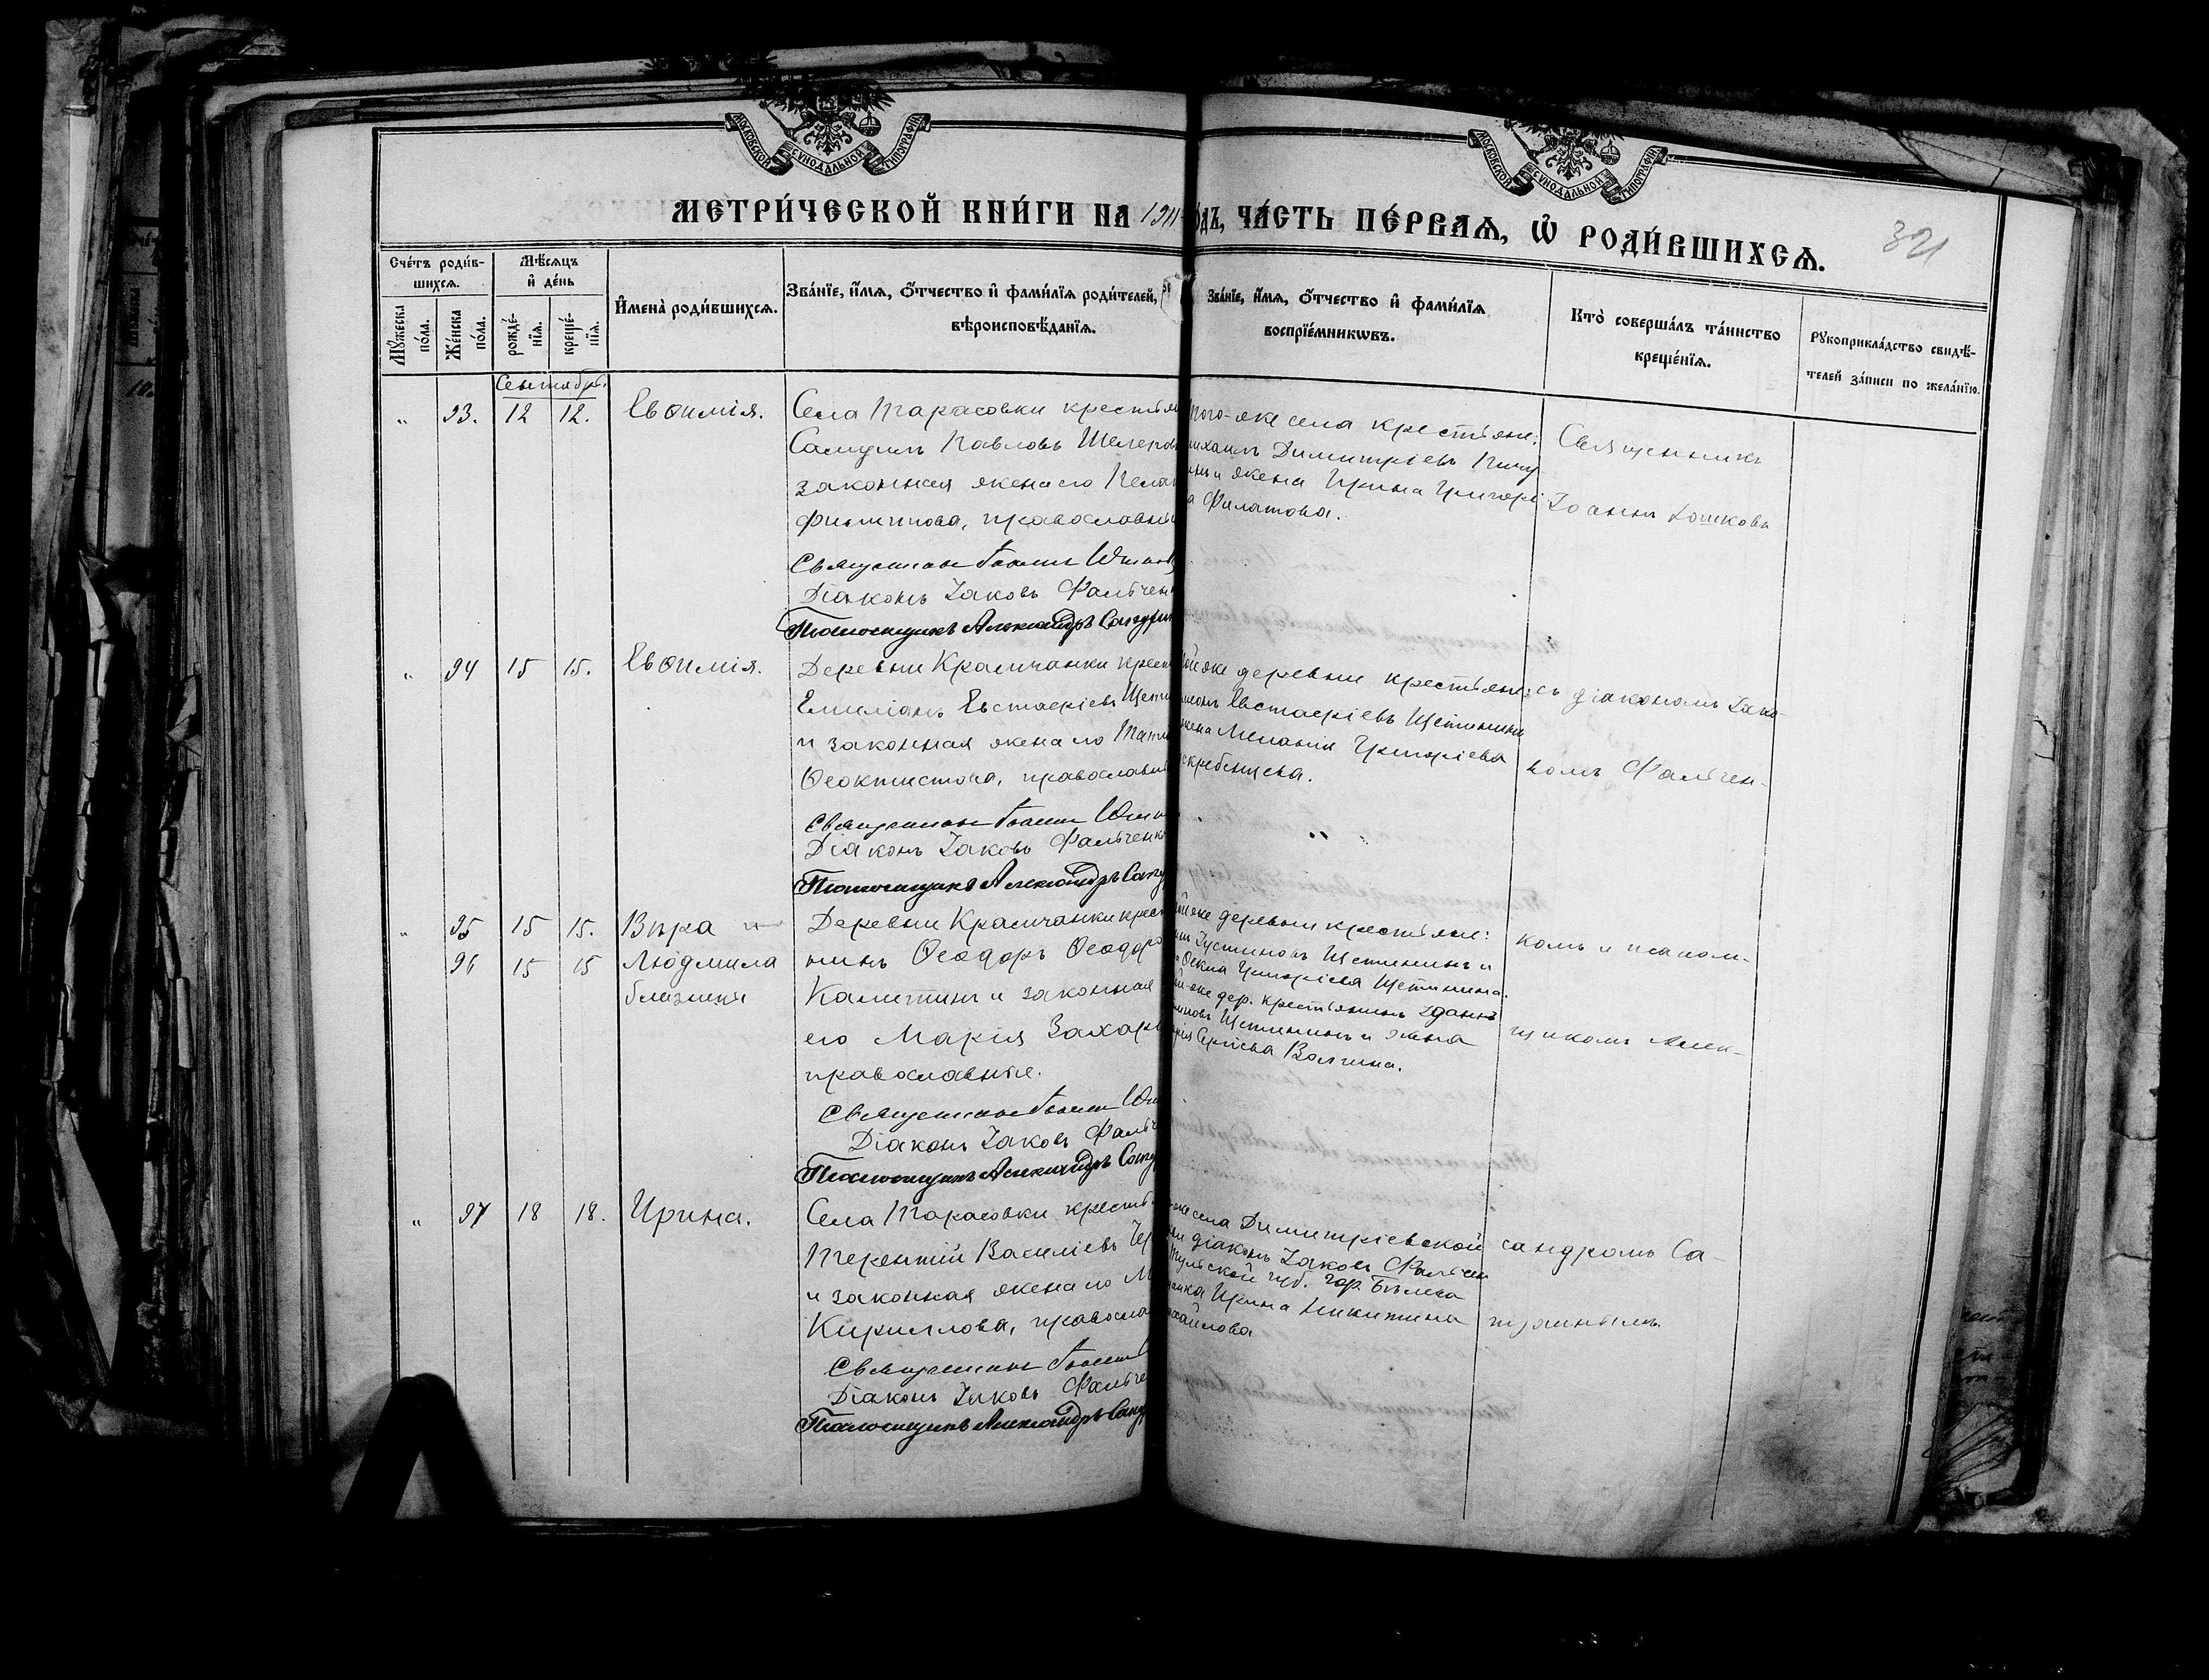 МОСКОВСКОЙ СѴНОДАЛЬНОЙ ТИПОГРАФІИ
МОСКОВСКОЙ СѴНОДАЛЬНОЙ ТИПОГРАФІИ
МЕТРИ́ЧЕСКОЙ КНИ́ГИ НА 1911
ОДЪ, ЧА́СТЬ ПЕ́РВАѦ, Ѡ҆ РОДИ́ВШИХСѦ.
321
Сче́тъ роди́в-
шихсѧ.
Мꙋ́жеска по́ла.
Же́нска по́ла.
Мѣ́сѧцъ
и҆ де́нь
рожде́-
нїѧ.
креще́-
нїѧ.
И҆мена̀ роди́вшихсѧ.
Зва́нїе, и҆́мѧ, ѻ҆́тчество и҆ фами́лїѧ роди́телей,
вѣроисповѣ́данїѧ.
Зва́нїе, и҆́мѧ, ѻ҆́тчество и҆ фами́лїѧ
воспрїе́мникѡвъ.
Кто̀ соверша́лъ та́инство
креще́нїѧ.
Рꙋкоприкла́дство свидѣ́-
телей за́писи по жела́нїю.
Сентябрь.
" 93. 12 12. Евѳимія.
Села Тарасовки крестьян
Самуилъ Павловъ Шелепов
законная жена его Пелаг
Филиппова, православны
Священникъ Іоаннъ
Діаконъ Іаковъ Фальчен
Псаломщикъ Александръ
того-же села крестьяне:
михаилъ Димитріевъ
и жена Ирина Григорі
а Филатова.
Священникъ
Іоаннъ
" 94 15 15. Евѳимія.
Деревни Крамчанки крест
Емиліанъ Евстаѳіевъ Щети
и законная жена его Тати
Ѳеоктистова, православн
Священникъ Іоаннъ
Діаконъ Іаковъ Фальченк
Псаломщикъ Александръ
ой же деревни крестьяне:
Евстаѳіевъ Щетининъ
жена Меланія Григоріева
скребенцева.
съ діакономъ Іако-
вомъ Фальчен-
" 95 15 15. Вѣра и
96 15 15 Людмила
близнецы
Деревни Крамчанки крест
нинъ Ѳеодоръ Ѳеодоро
Калитинъ и законная
его Марія Захарь
православные.
Священникъ Іоаннъ
Діаконъ Іаковъ Фальч
Псаломщикъ Александръ
ой же деревни крестьяне:
Іустиновъ Щетининъ и
Ѳекла Григоріева Щетинина.
ой-же дер. крестьянинъ
Щетининъ и жена
рія Сергіева Волгина.
комъ и псалом-
щикомъ Алек-
" 97 18 18. Ирина.
Села Тарасовки крестья
Терентій Василіевъ
и законная жена его М
Кириллова, правосла
Священникъ Іоаннъ
Діаконъ Іаковъ Фальче
Псаломщикъ Александръ
же села Димитріевской
діаконъ Іаковъ Фальчен
Тульской губ. гор. Бѣлева
Ирина Никитина
хайлова
сандромъ Са-